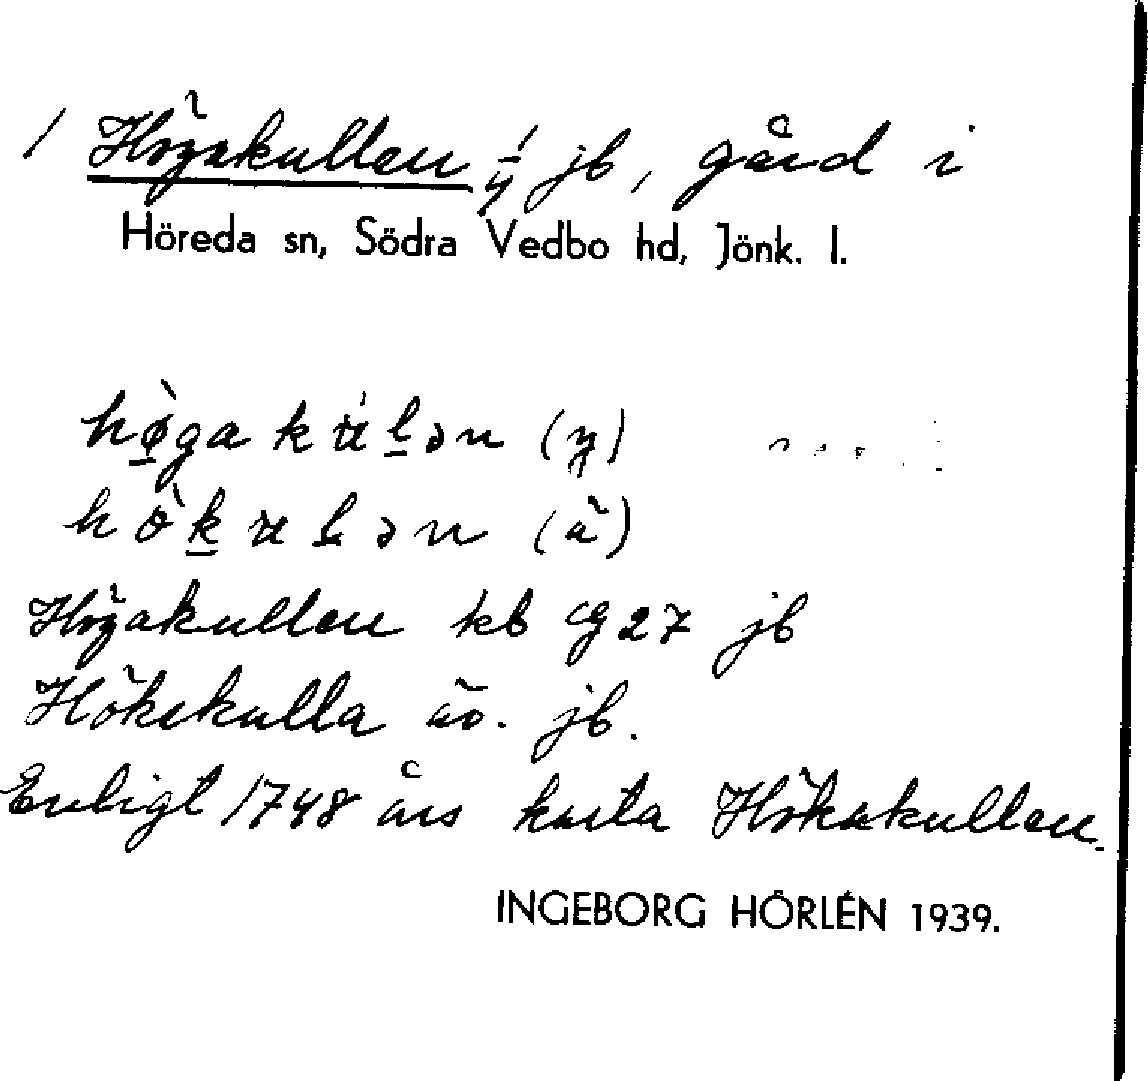 1 Högakullen 1/4 jb, gård i
Höreda sn, Södra Vedbo hd, Jönk. l.
hø̀ga kʉ́lən (y)
hö̀kʉlən (ä)
Högakullen kb CI 27 jb
Hökskulla äv. jb.
Enligt 1748 års karta Högakullen.
INGEBORG HÖRLÉN 1939.